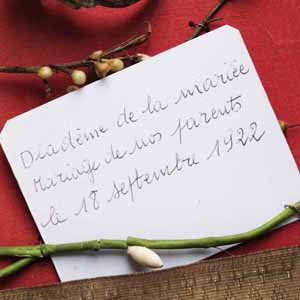 Diadème de la mariée
Mariage de nos parents
le 18 septembre 1922